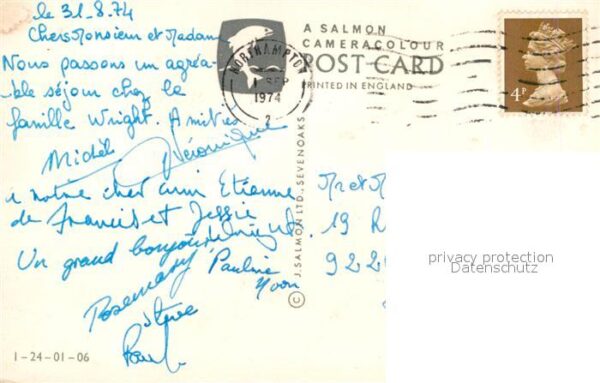 le 31.8.74
Chers Monsieur et Madame
Nous passons un agréa-
ble séjour chez la
famille Wright. Amitiés
Michel Véronique
à notre cher ami Etienne
de Francis et Jessie
Un grand bonjour
Rosemary Pauline
Yvon
Steve
Paul
1-24-01-06
NORTHAMPTON
1 SEP
1974
2
A SALMON
CAMERACOLOUR
POST CARD
PRINTED IN ENGLAND
© J. SALMON LTD., SEVENOAKS
4P
Mr et M
19 R
922
privacy protection
Datenschutz